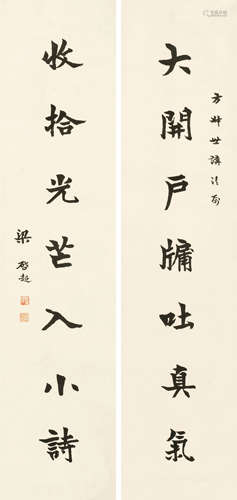 大開戶牖吐真氣
方叔世講法家
收拾光芒入小詩
梁啟超